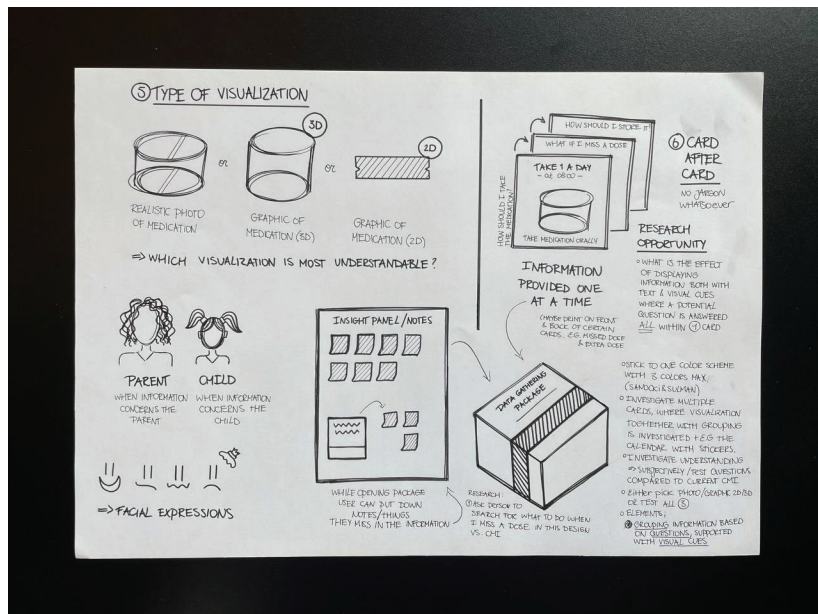 ⑤ TYPE OF VISUALIZATION
3D
2D
or
or
REALISTIC PHOTO
OF MEDICATION
GRAPHIC OF
MEDICATION (3D)
GRAPHIC OF
MEDICATION (2D)
⇒ WHICH VISUALIZATION IS MOST UNDERSTANDABLE?
PARENT
WHEN INFORMATION
CONCERNS THE
PARENT
CHILD
WHEN INFORMATION
CONCERNS THE
CHILD
⇒ FACIAL EXPRESSIONS
INSIGHT PANEL/NOTES
WHILE OPENING PACKAGE
USER CAN PUT DOWN
NOTES/THINGS
THEY MISS IN THE INFORMATION
HOW SHOULD I STORE IT
WHAT IF I MISS A DOSE
HOW SHOULD I TAKE
THE MEDICATION?
TAKE 1 A DAY
- at 08:00 -
TAKE MEDICATION ORALLY
INFORMATION
PROVIDED ONE
AT A TIME
(MAYBE PRINT ON FRONT
& BACK OF CERTAIN
CARDS. E.G. MISSED DOSE
& EXTRA DOSE
DATA GATHERING
PACKAGE
RESEARCH:
① ASK PERSON TO
SEARCH FOR WHAT TO DO WHEN
I MISS A DOSE IN THIS DESIGN
VS. CMI
⑥ CARD
AFTER
CARD
NO JARGON
WHATSOEVER
RESEARCH
OPPORTUNITY
○ WHAT IS THE EFFECT
OF DISPLAYING
INFORMATION BOTH WITH
TEXT & VISUAL CUES
WHERE A POTENTIAL
QUESTION IS ANSWERED
ALL WITHIN ① CARD
○ STICK TO ONE COLOR SCHEME
WITH 3 COLORS MAX.
○ INVESTIGATE MULTIPLE
CARDS, WHERE VISUALIZATION
TOGHETHER WITH GROUPING
IS INVESTIGATED + E.G THE
CALENDAR WITH STICKERS.
○ INVESTIGATE UNDERSTANDING
⇒ SUBJECTIVELY/TEST QUESTIONS
COMPARED TO CURRENT CMI
○ EITHER PICK PHOTO/GRAPHIC 2D/3D
OR TEST ALL ③
○ ELEMENTS:
GROUPING INFORMATION BASED
ON QUESTIONS, SUPPORTED
WITH VISUAL CUES